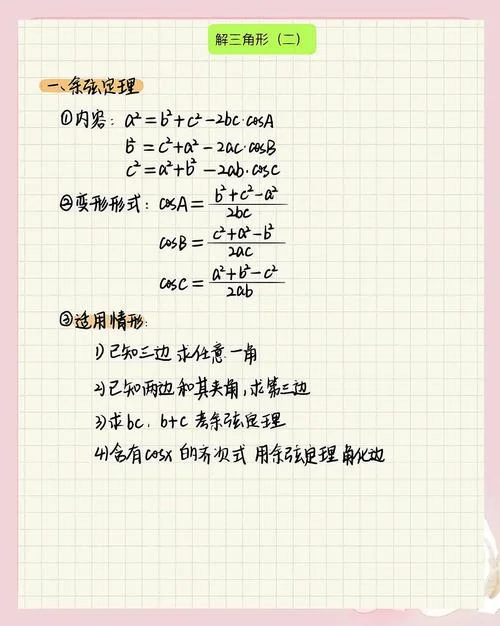 解三角形（二）
一、余弦定理
①内容：a²=b²+c²-2bc·cosA
b²=c²+a²-2ac·cosB
c²=a²+b²-2ab·cosC
②变形形式：cosA=\frac{b²+c²-a²}{2bc}
cosB=\frac{c²+a²-b²}{2ac}
cosC=\frac{a²+b²-c²}{2ab}
③适用情形：
1)已知三边 求任意一角
2)已知两边和其夹角,求第三边
3)求bc、b+c 考余弦定理
4)含有cosx的齐次式 用余弦定理角化边